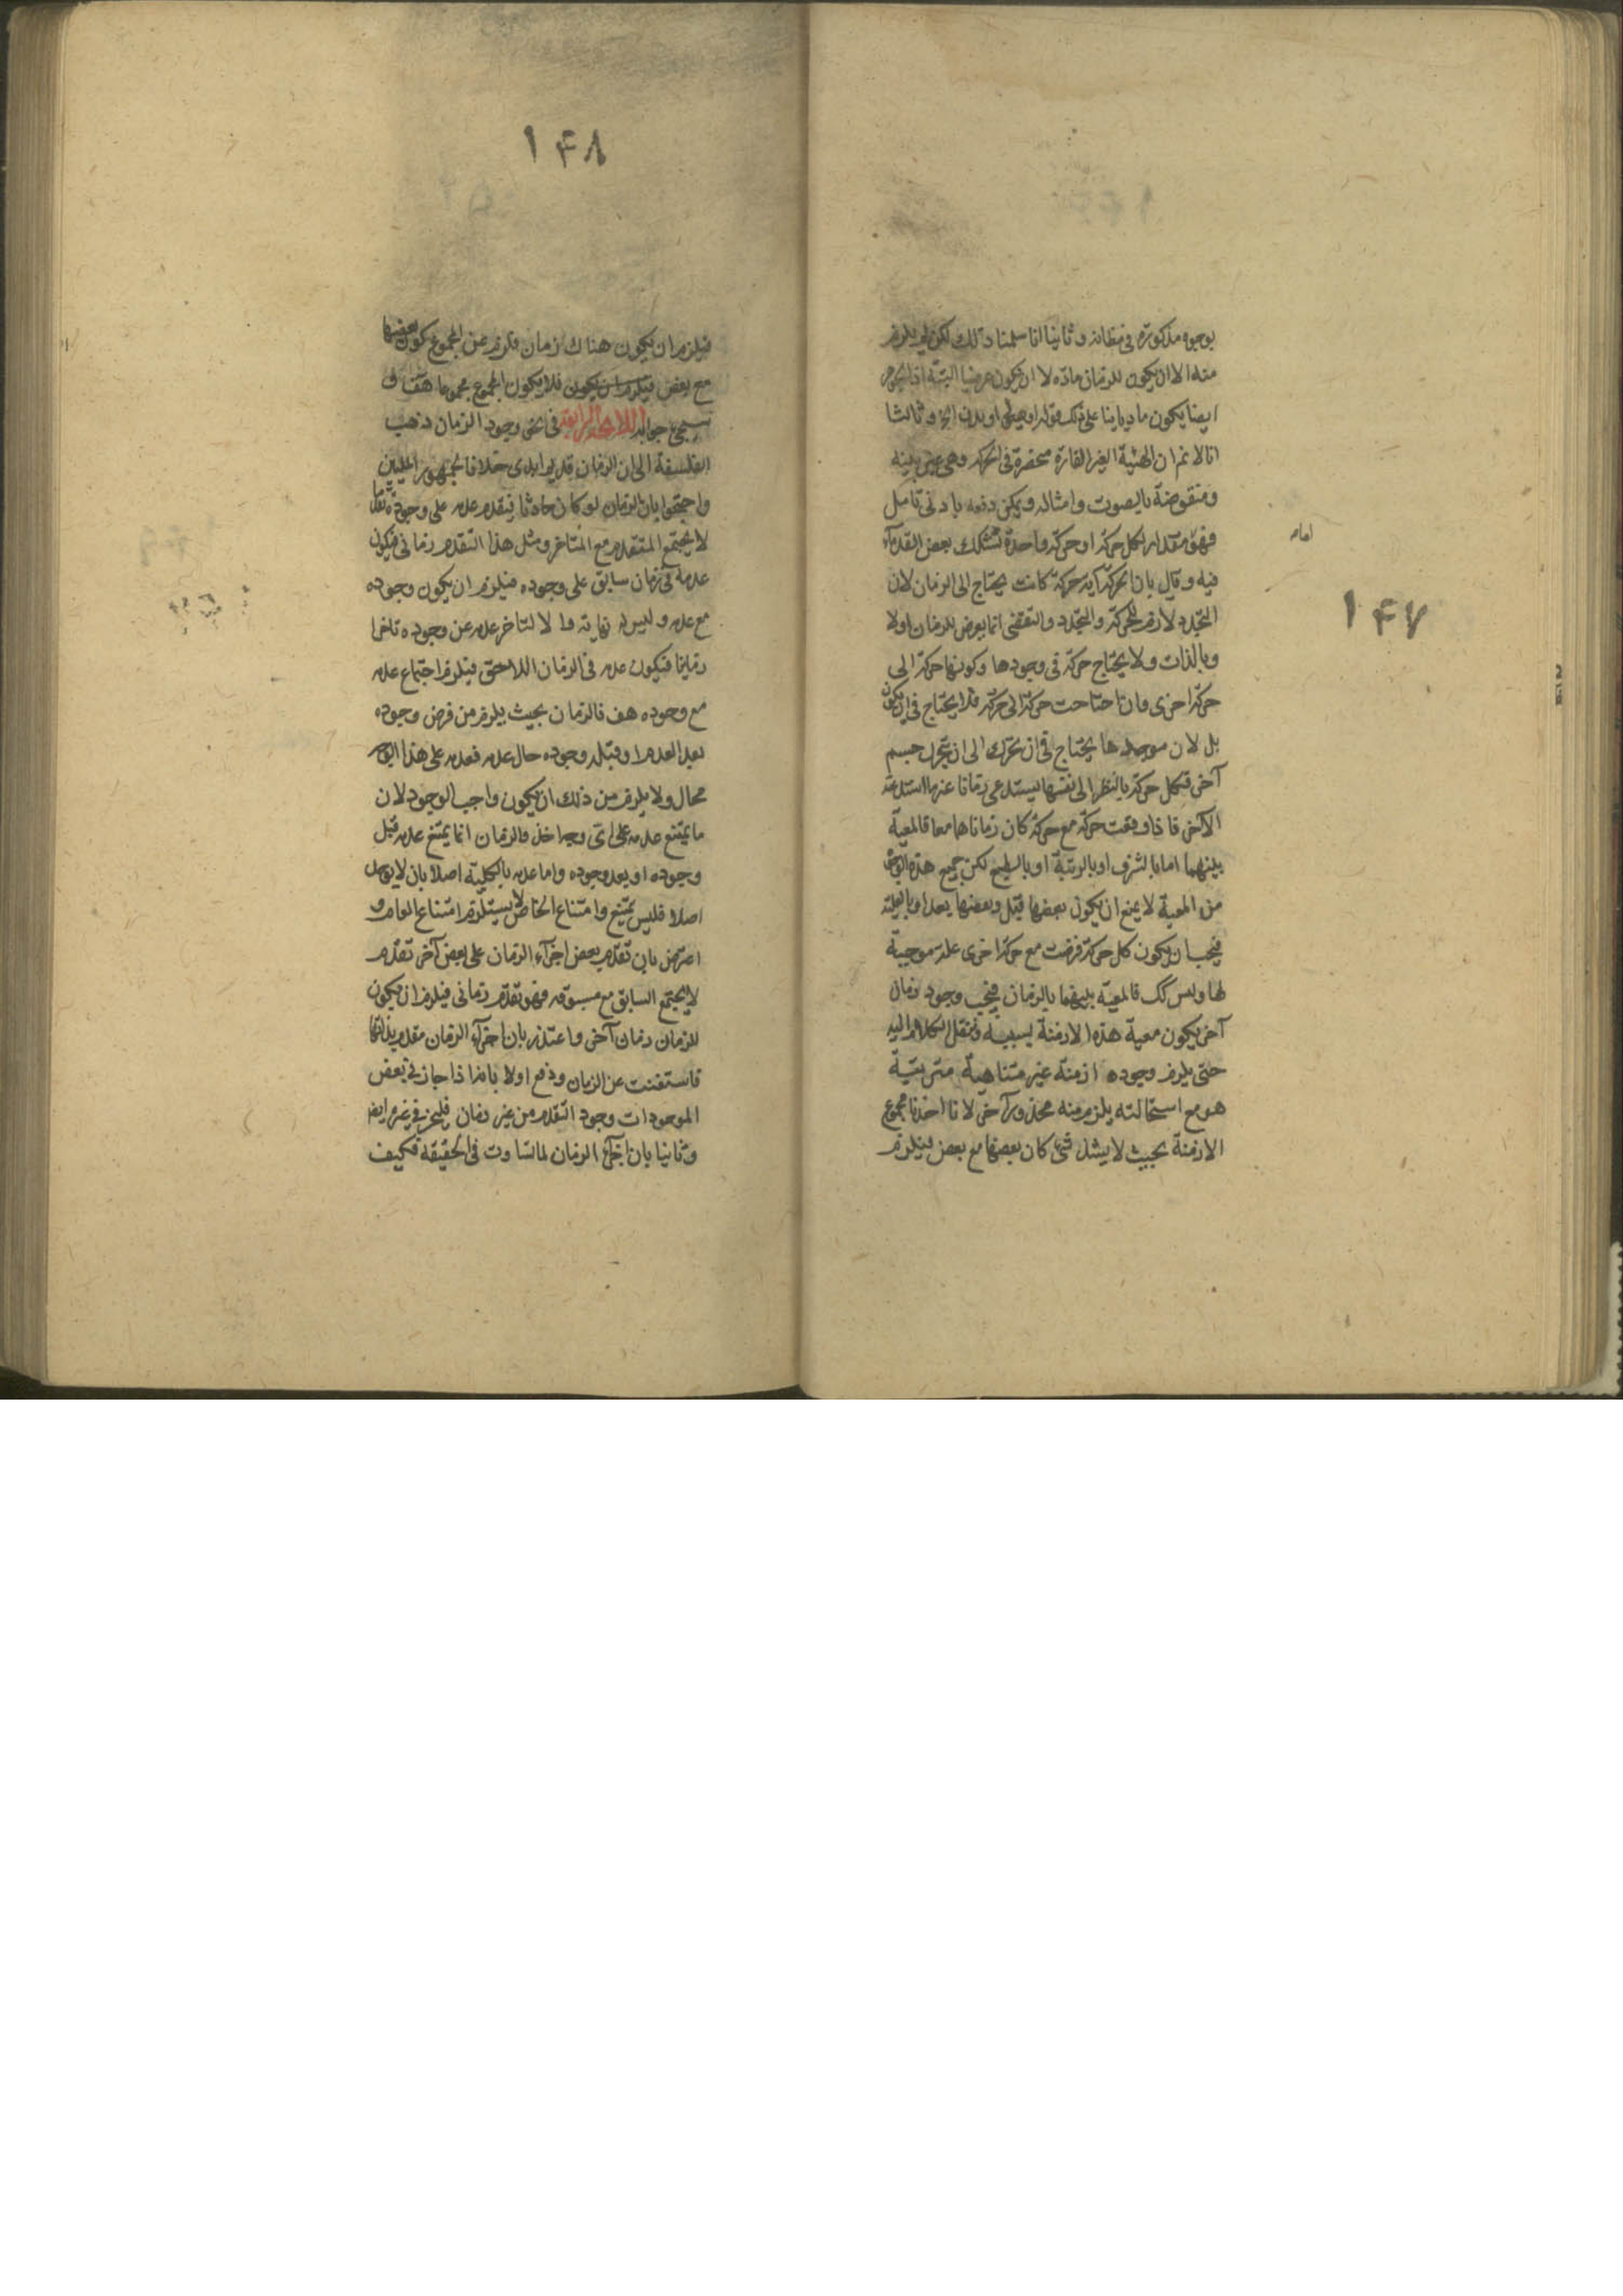 ۱۴۷
بوجوه مذكورة فى مظانه و ثانيا انا سلمنا ذلك لكن لم يلزم
منه الا ان يكون للزمان مادة لا ان يكون عرضيا البتة اذ الجوهر
ايضا يكون ماديا بنا على ذلك او هيولى او بدن الخ و ثالثا
انا لا نم ان الهيئة الغير القارة منحصرة فى الحركة وهى عين بينة
و منقوضة بالصوت و امثاله و يمكن دفعه بادنى تامل
فهو مقدار لكل حركة او حركة واحدة تشكك بعض القدمآء
امامه
فيه و قال بان الحركة اية حركة كانت يحتاج الى الزمان لان
التجدد لازم للحركة والتجدد والتقضى انما يعرض للزمان اولا
وبالذات ولا يحتاج حركة فى وجودها وكونها حركة الى
حركة اخرى وان احتاجت حركة الى حركة فلا يحتاج فى ان يكون
بل لان موجدها يحتاج فى ان تحرك الى ان يتحرك جسم
آخر فكل حركة بالنظر الى نفسها يستدعى زمانا عند استدعته
الآخر فاذا وقعت حركة مع حركة كان زماناهما معا فالمعية
بينهما اما بالشرف او بالرتبة او بالطبع لكن جميع هذه
من المعية لا يمنع ان يكون بعضها قبل وبعضها بعد او بالعلية
فيجب ان يكون كل حركة فرضت مع حركة اخرى علة موجبة
لها وليس كك فالمعية بينهما بالزمان فيجب وجود زمان
آخر يكون معية هذه الازمنة بسببه و ننقل الكلام اليه
حتى يلزم وجوده ازمنة غير متناهية مترتبة
هو مع استحالته يلزم منه محذور آخر لانا اخذنا مجموع
الازمنة بحيث لا يشذ شئ كان بعضها مع بعض فيلزم
۱۴۸
فيلزم ان يكون هناك زمان فلزم عن المجموع كون بعضها
مع بعض فيلزم ان يكون فلا يكون المجموع مجموعا هف و
سيجئ جوابه اللائحة الرابعة فى نحو وجود الزمان ذهب
الفلسفة الى ان الزمان قديم ابدى خلافا لجمهور المليين
واحتجوا بان الزمان لو كان حادثا فيتقدم عدمه على وجوده تقدما
لا يجتمع المتقدم مع المتاخر و مثل هذا التقدم زمانى فيكون
عدمه فى زمان سابق على وجوده فيلزم ان يكون وجوده
مع عدمه وليس له نهاية والا لتاخر عدمه عن وجوده تاخرا
زمانيا فيكون عدمه فى الزمان اللاحق فيلزم اجتماع عدمه
مع وجوده هف فالزمان بحيث يلزم من فرض وجوده
بعد العدم او قبله وجوده حال عدمه فعدمه على هذا الوجه
محال ولا يلزم من ذلك ان يكون واجب الوجود لان
ما يمتنع عدمه على اى وجه اخذ والزمان انما يمتنع عدمه قبل
وجوده او بعد وجوده واما عدمه بالكلية اصلا بان لا يوجد
اصلا فليس يمتنع وامتناع الخاص لا يستلزم امتناع العام و
اعترض بان تقدم بعض اجزآء الزمان على بعض آخر تقدم
لا يجتمع السابق مع مسبوقه فهو تقدم زمانى فيلزم ان يكون
للزمان زمان آخر واعتذر بان اجزآء الزمان مقدم بذاتها
فاستغنت عن الزمان ودفع اولا بانه اذا جاز فى بعض
الموجودات وجود التقدم من غير زمان فليجز فى غيره ايضا
وثانيا بان اجزآء الزمان لما تساوت فى الحقيقة فكيف